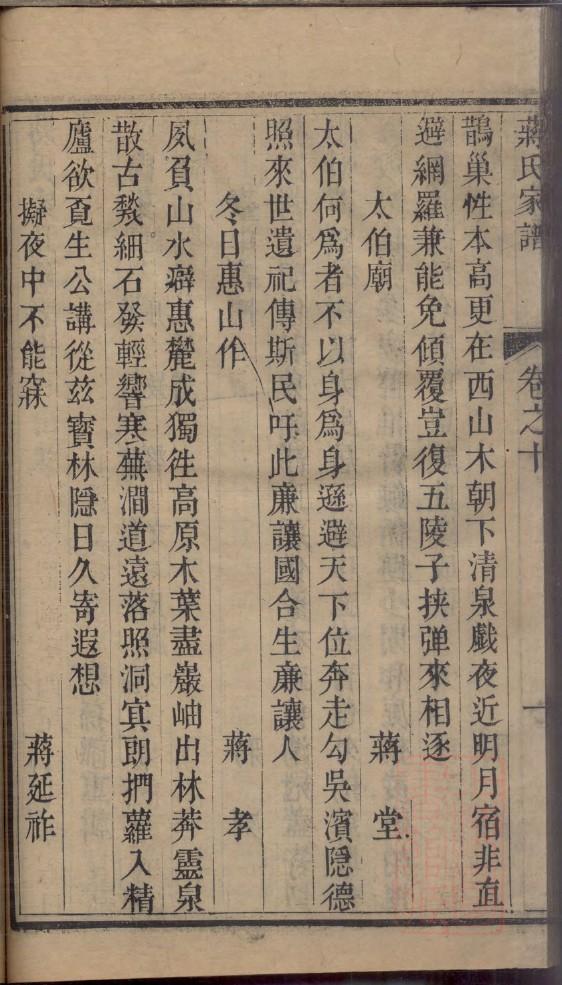 蔣氏家譜 卷之十 一
鵲巢性本高更在西山木朝下清泉戯夜近明月宿非直
避網羅兼能免傾覆豈復五陵子挟弹來相逐
太伯廟 蔣堂
太伯何爲者不以身爲身遜避天下位奔走勾吳濱隱德
照來世遺祀傳斯民吁此廉讓國合生廉讓人
冬日惠山作 蔣孝
夙負山水癖惠麓成獨徃高原木葉盡巖岫出林莽靈泉
散古甃細石發輕響寒蕪澗道遠落照洞宾朗捫蘿入精
廬欲覔生公講從兹寳林隱日久寄遐想
擬夜中不能寐 蔣延祚